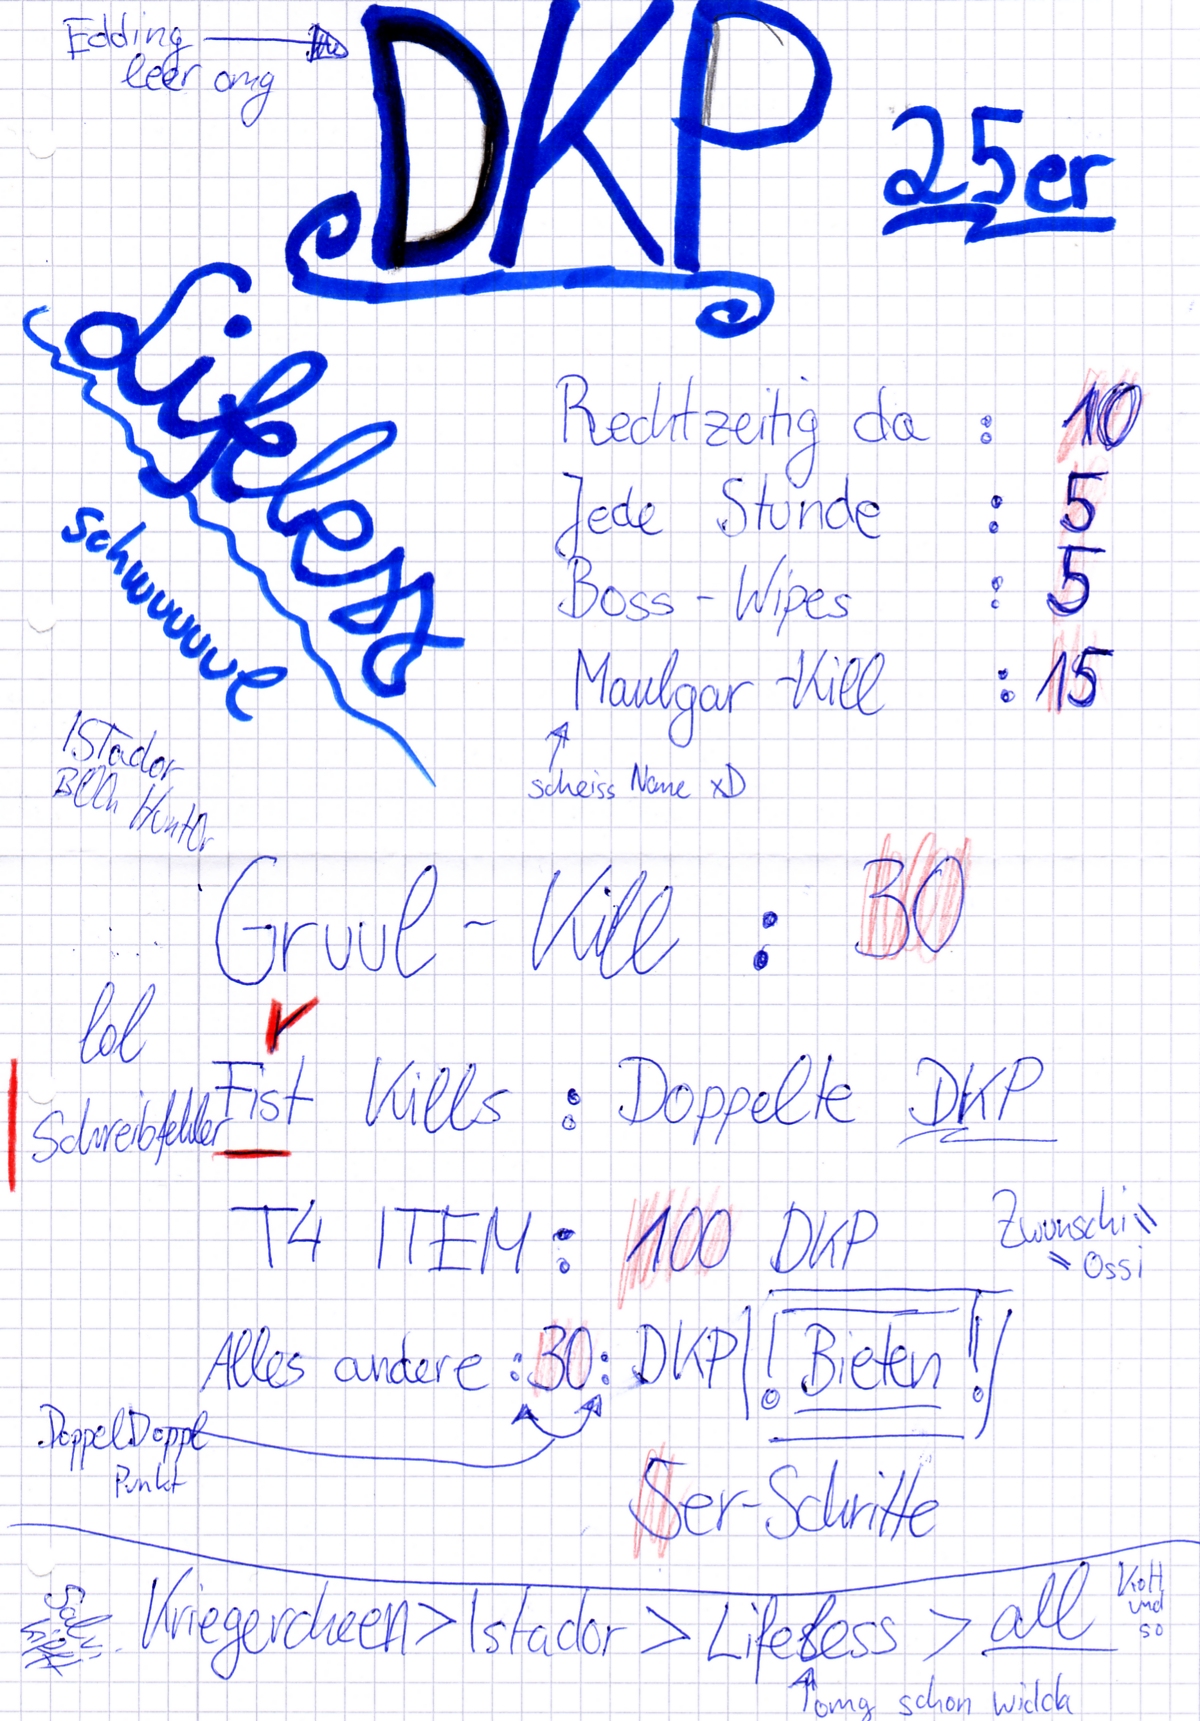 Edding
leer omg
DKP
25er
Lifeless
schwuuuuul
Rechtzeitig da : 10
Jede Stunde : 5
Boss-Wipes : 5
Maulgar-Kill : 15
scheiss Name xD
IStador
BÖÖn HuntOr
Gruul-Kill : 30
lol
r
Schreibfehler
Fist Kills : Doppelte DKP
T4 ITEM : 100 DKP
Zwunschi
Ossi
Alles andere :30: DKP ! Bieten !
DoppelDoppl
Punkt
5er-Schritte
Kriegercheen>Istador>Lifeless>all
Kott
und
so
omg schon widda